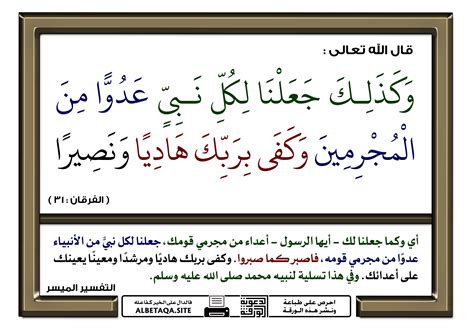 قال الله تعالى :
وَكَذَلِـكَ جَعَلْنَا لِكُلِّ نَـبِيٍّ عَدُوًّا مِنَ
الْمُجْرِمِينَ وَكَفَى بِرَبِّكَ هَادِيًا وَنَصِيرًا
( الفرقان : ٣١ )
أي وكما جعلنا لك - أيها الرسول - أعداء من مجرمي قومك، جعلنا لكل نبيٍّ من الأنبياء
عدوًا من مجرمي قومه، فاصبر كما صبروا. وكفى بربك هاديًا ومرشدًا ومعينًا يعينك
على أعدائك. وفي هذا تسلية لنبيه محمد صلى الله عليه وسلم.
التفسير الميسر
فالدال على الخير كفاعله
ALBETAQA.SITE
احرص على طباعة
ونشر هذه الورقة